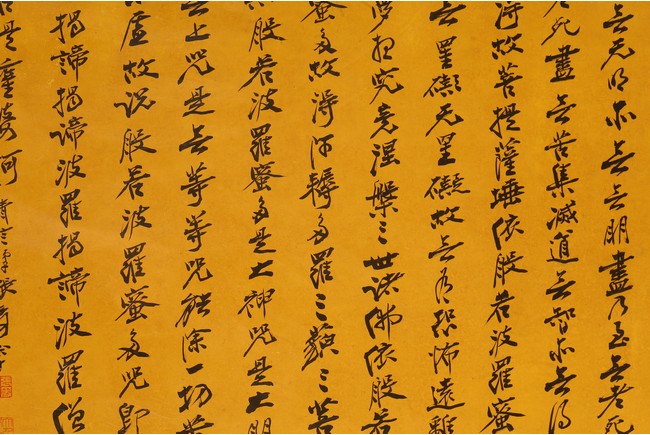 無无明亦無無明盡乃至無老死
老死盡無苦集滅道無智亦無得
得故菩提薩埵依般若波羅蜜
無罣礙无罣礙故無有恐怖遠離
夢想究竟涅槃三世諸佛依般若
蜜多故得阿耨多羅三藐三菩
般若波羅蜜多是大神咒是大明
無上咒是無等等咒能除一切苦
虛故說般若波羅蜜多咒即
揭諦揭諦波羅揭諦波羅僧